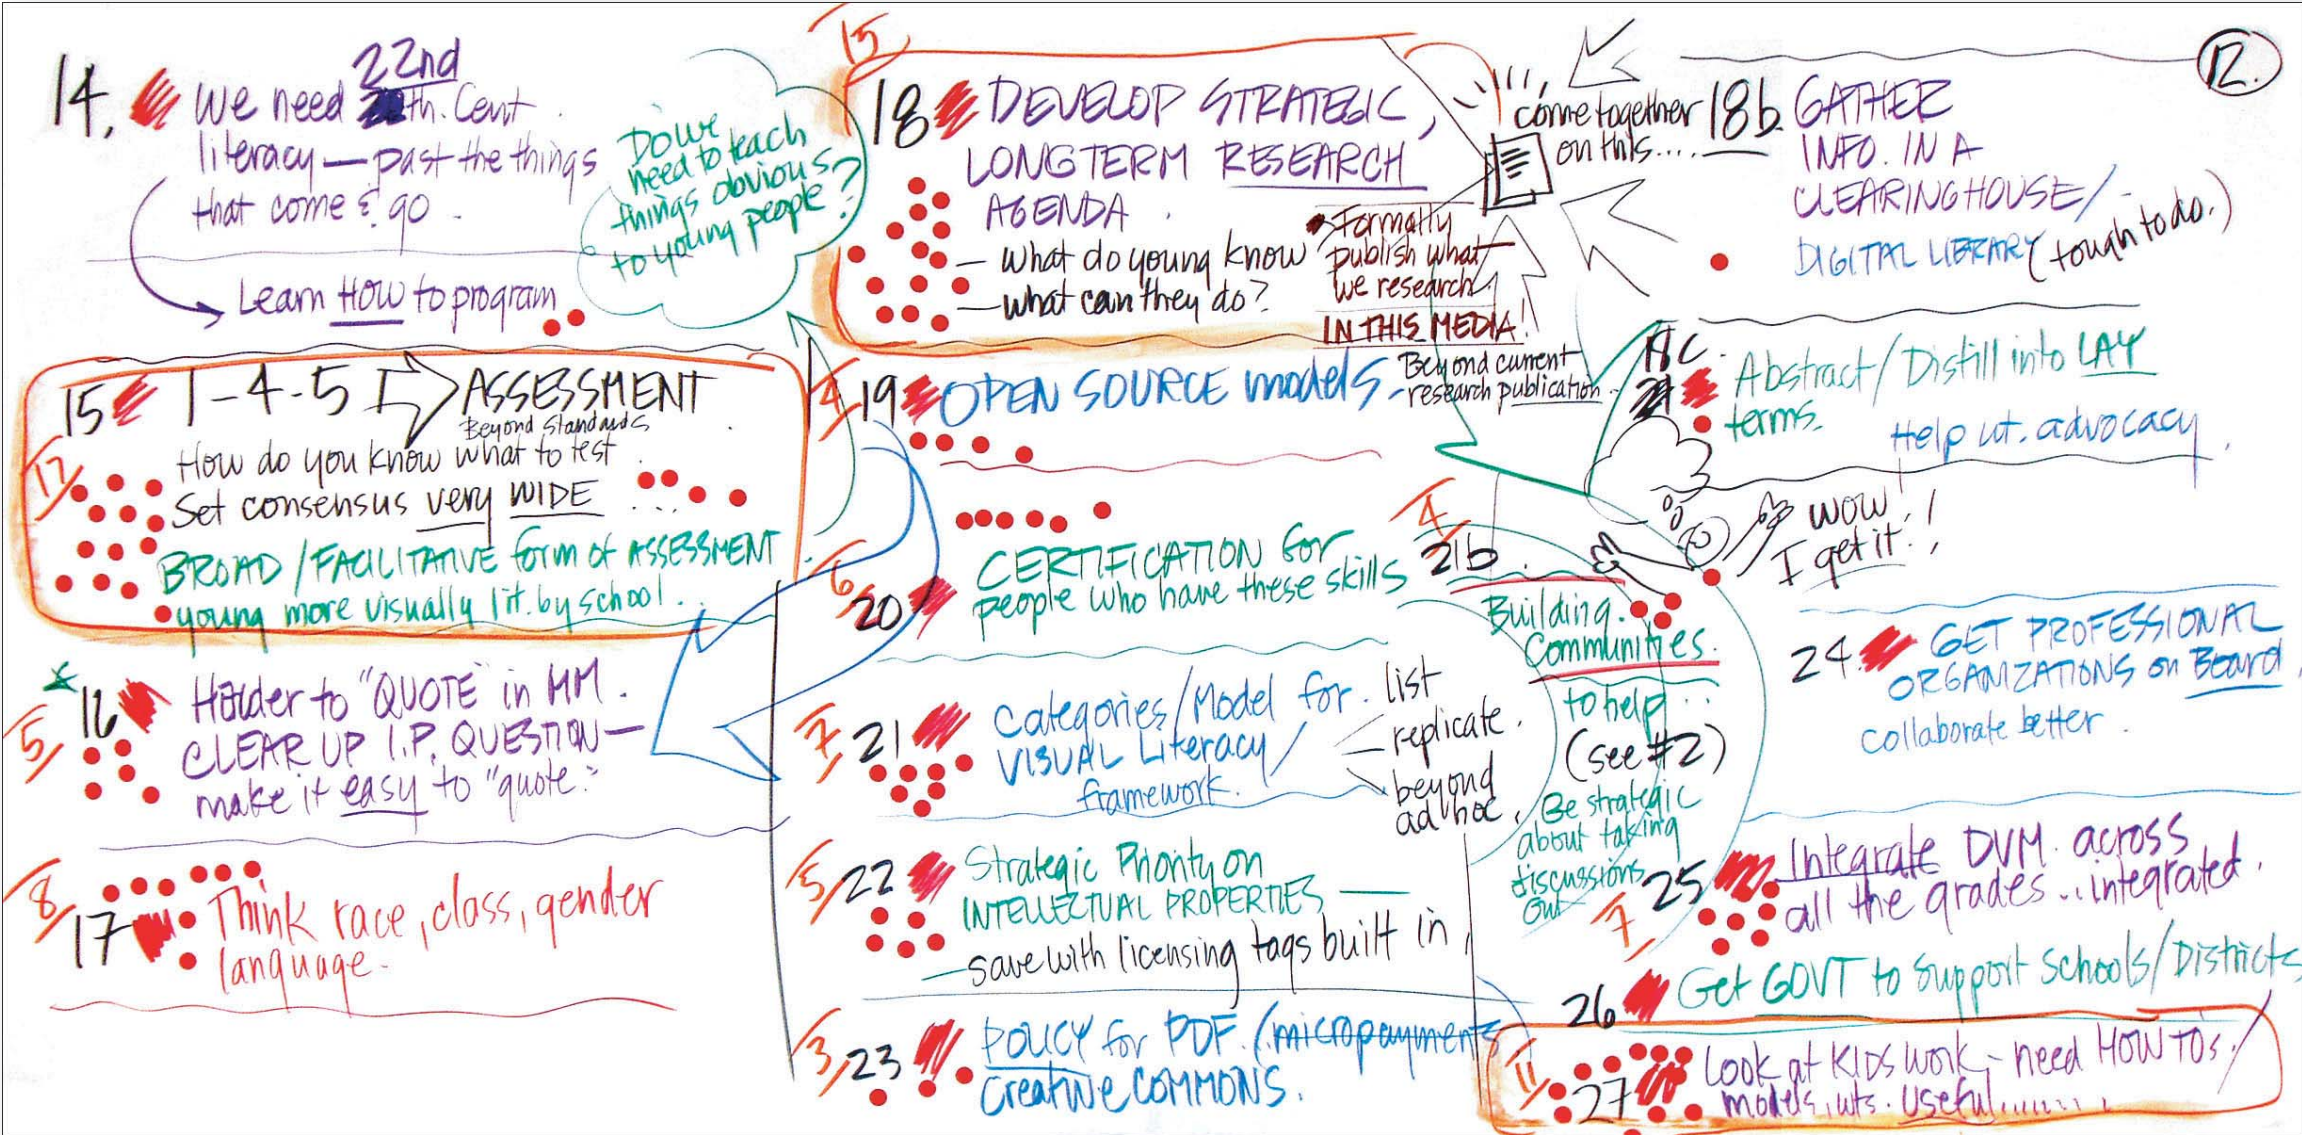 12.
14.
22nd
We need th. Cent
literacy — past the things
that come & go.
Learn HOW to program
Do we
need to teach
things obvious
to young people?
17
15 1-4-5 ASSESSMENT
Beyond standards
How do you know what to test
Set consensus very WIDE ...
BROAD/FACILITATIVE form of ASSESSMENT
young more visually lit. by school..
5
16 Harder to "QUOTE" in MM.
CLEAR UP I.P. QUESTION—
make it easy to "quote."
8
17 Think race, class, gender
language.
15
18 DEVELOP STRATEGIC,
LONG TERM RESEARCH
AGENDA.
— What do young know
— what can they do?
Formally
publish what
we research
IN THIS MEDIA!
come together
on this....
4
19 OPEN SOURCE models -
Beyond current
research publication..
6
20 CERTIFICATION for
people who have these skills
7
21 Categories/Model for.
VISUAL Literacy/
framework.
list
replicate.
beyond
ad hoc.
5
22 Strategic Priority on
INTELLECTUAL PROPERTIES —
— save with licensing tags built in,
3
23 POLICY for PDF. (micropayments
Creative COMMONS.
18b. GATHER
INFO. IN A
CLEARINGHOUSE/
DIGITAL LIBRARY (tough to do.)
18C. Abstract/Distill into LAY
terms.
Help wt. advocacy.
WOW!
I get it!!
4
21b
Building
Communities.
to help...
(see #2)
Be strategic
about taking
discussions
out
24. GET PROFESSIONAL
ORGANIZATIONS on Board.
Collaborate better.
7
25 Integrate DVM. across
all the grades... integrated.
26 Get GOVT to support schools/Districts
11
27 Look at KIDS work — need HOW TOs/
models, wts. useful........